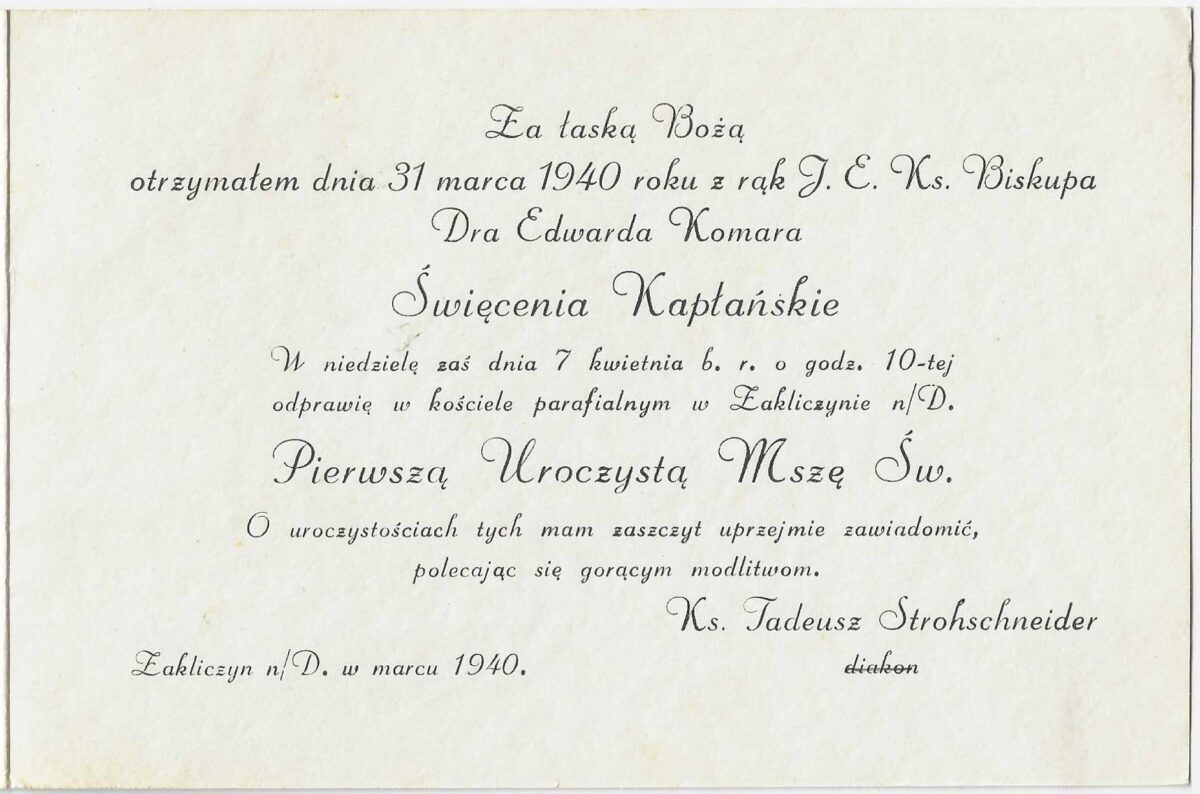 Za łaską Bożą
otrzymałem dnia 31 marca 1940 roku z rąk J. E. Ks. Biskupa
Dra Edwarda Komara
Święcenia Kapłańskie
W niedzielę zaś dnia 7 kwietnia b. r. o godz. 10-tej
odprawię w kościele parafialnym w Zakliczynie n/D.
Pierwszą Uroczystą Mszę Św.
O uroczystościach tych mam zaszczyt uprzejmie zawiadomić,
polecając się gorącym modlitwom.
Ks. Tadeusz Strohschneider
Zakliczyn n/D. w marcu 1940. diakon